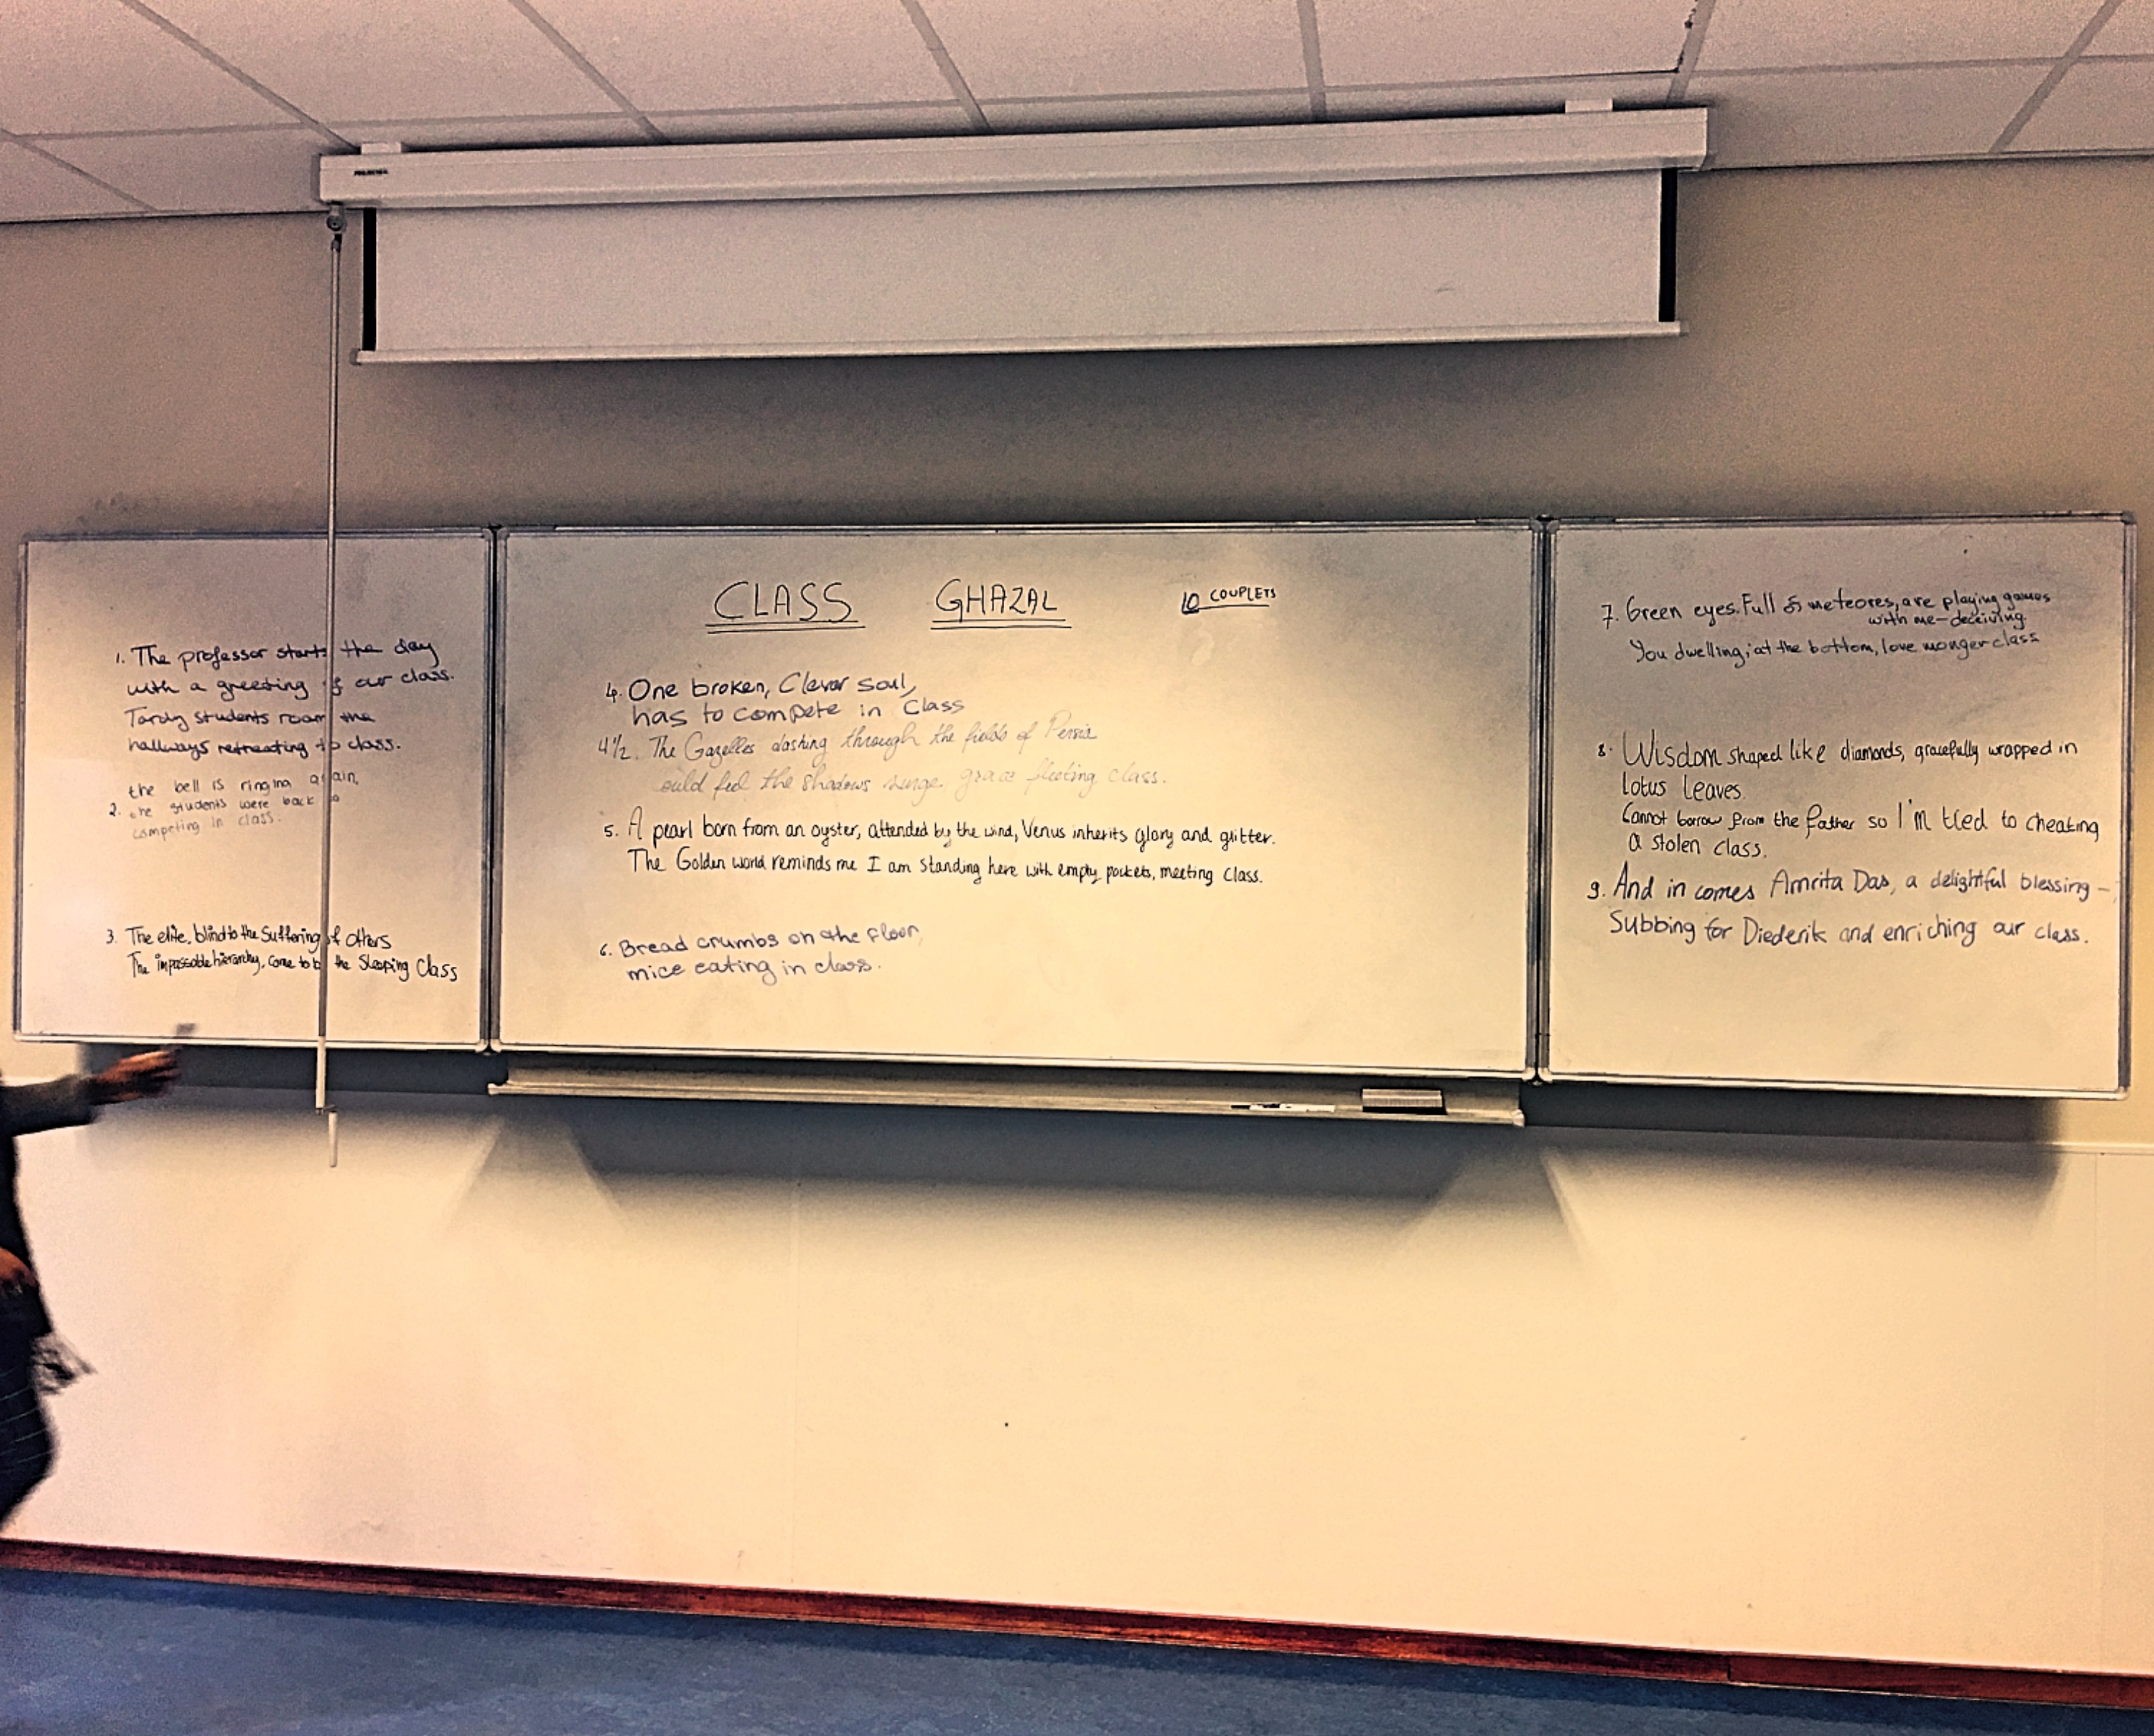 1. The professor starts the day
with a greeting of our class.
Tardy students roam the
hallways retreating to class.
the bell is ringing again,
2. the students were back to
competing in class.
3. The elite, blind to the suffering of others
The impassable hierarchy, come to be the Sleeping Class
CLASS GHAZAL 10 COUPLETS
4. One broken, Clever soul,
has to compete in Class
4 1/2. The Gazelles dashing through the fields of Persia
ould feel the shadows surge grace fleeting class.
5. A pearl born from an oyster, attended by the wind, Venus inherits glory and glitter.
The Golden world reminds me I am standing here with empty pockets, meeting Class.
6. Bread crumbs on the floor,
mice eating in class.
7. Green eyes. Full of meteores, are playing games
with me-deceiving.
You dwelling, at the bottom, love monger class
8. Wisdom shaped like diamonds, gracefully wrapped in
lotus leaves
Cannot borrow from the father so I'm tied to cheating
a stolen class.
9. And in comes Amrita Das, a delightful blessing –
Subbing for Diederik and enriching our class.